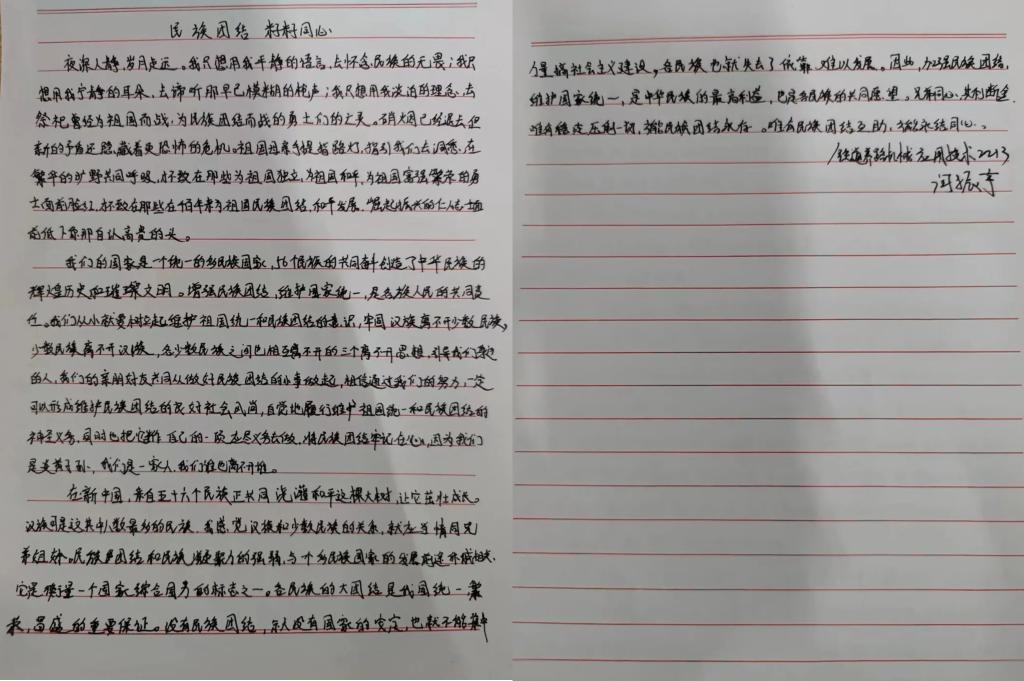 民族团结 籽籽同心
夜深人静,岁月走远。我只想用我平静的语言,去怀念民族的无畏;我只
想用我宁静的耳朵,去谛听那早已模糊的枪声;我只想用我淡泊的理念,去
祭祀曾经为祖国而战,为民族团结而战的勇士们的之灵。硝烟已经退去但
新的矛盾还隐藏着更恐怖的危机。祖国母亲手提着路灯,指引我们去沉思,在
繁华的旷野共同呼吸,不致在那些为祖国独立,为祖国和平,为祖国富强繁荣的勇
士面前脸红,不致在那些在百年来为祖国民族团结,和平发展,崛起振兴的仁人志士面
前低下你那自认高贵的头。
我们的国家是一个统一的多民族国家,56个民族的共同奋斗创造了中华民族的
辉煌历史和璀璨文明。增强民族团结,维护国家统一,是各族人民的共同责
任。我们从小就要树立起维护祖国统一和民族团结的意识,牢固汉族离不开少数民族,
少数民族离不开汉族,各少数民族之间也相互离不开的三个离不开思想,引导我们身边
的人,我们的亲朋好友共同从做好民族团结的小事做起,相信通过我们的努力,一定
可以形成维护民族团结的良好社会风尚,自觉地履行维护祖国统一和民族团结的
神圣义务,同时也把它当作自己的一项应尽义务去做,将民族团结牢记在心,因为我们
是炎黄子孙,我们是一家人,我们谁也离不开谁。
在新中国,来自五十六个民族正共同浇灌和平这棵大树,让它茁壮成长。
汉族可是这其中人数最多的民族,我感觉汉族和少数民族的关系,就应当情同兄
弟姐妹。民族团结和民族凝聚力的强弱,与一个多民族国家的发展前途休戚相关,
它是衡量一个国家综合国力的标志之一。各民族的大团结是我国统一繁
荣,昌盛的重要保证。没有民族团结,就没有国家的安定,也就不能集中
力量搞社会主义建设,各民族也就失去了依靠,难以发展。因此,加强民族团结,
维护国家统一,是中华民族的最高利益,也是各民族的共同愿望。兄弟同心,其利断金,
唯有稳定压制一切,才能民族团结永存。唯有民族团结互助,才能永结同心。
铁道养路机械应用技术2213
闫振宇